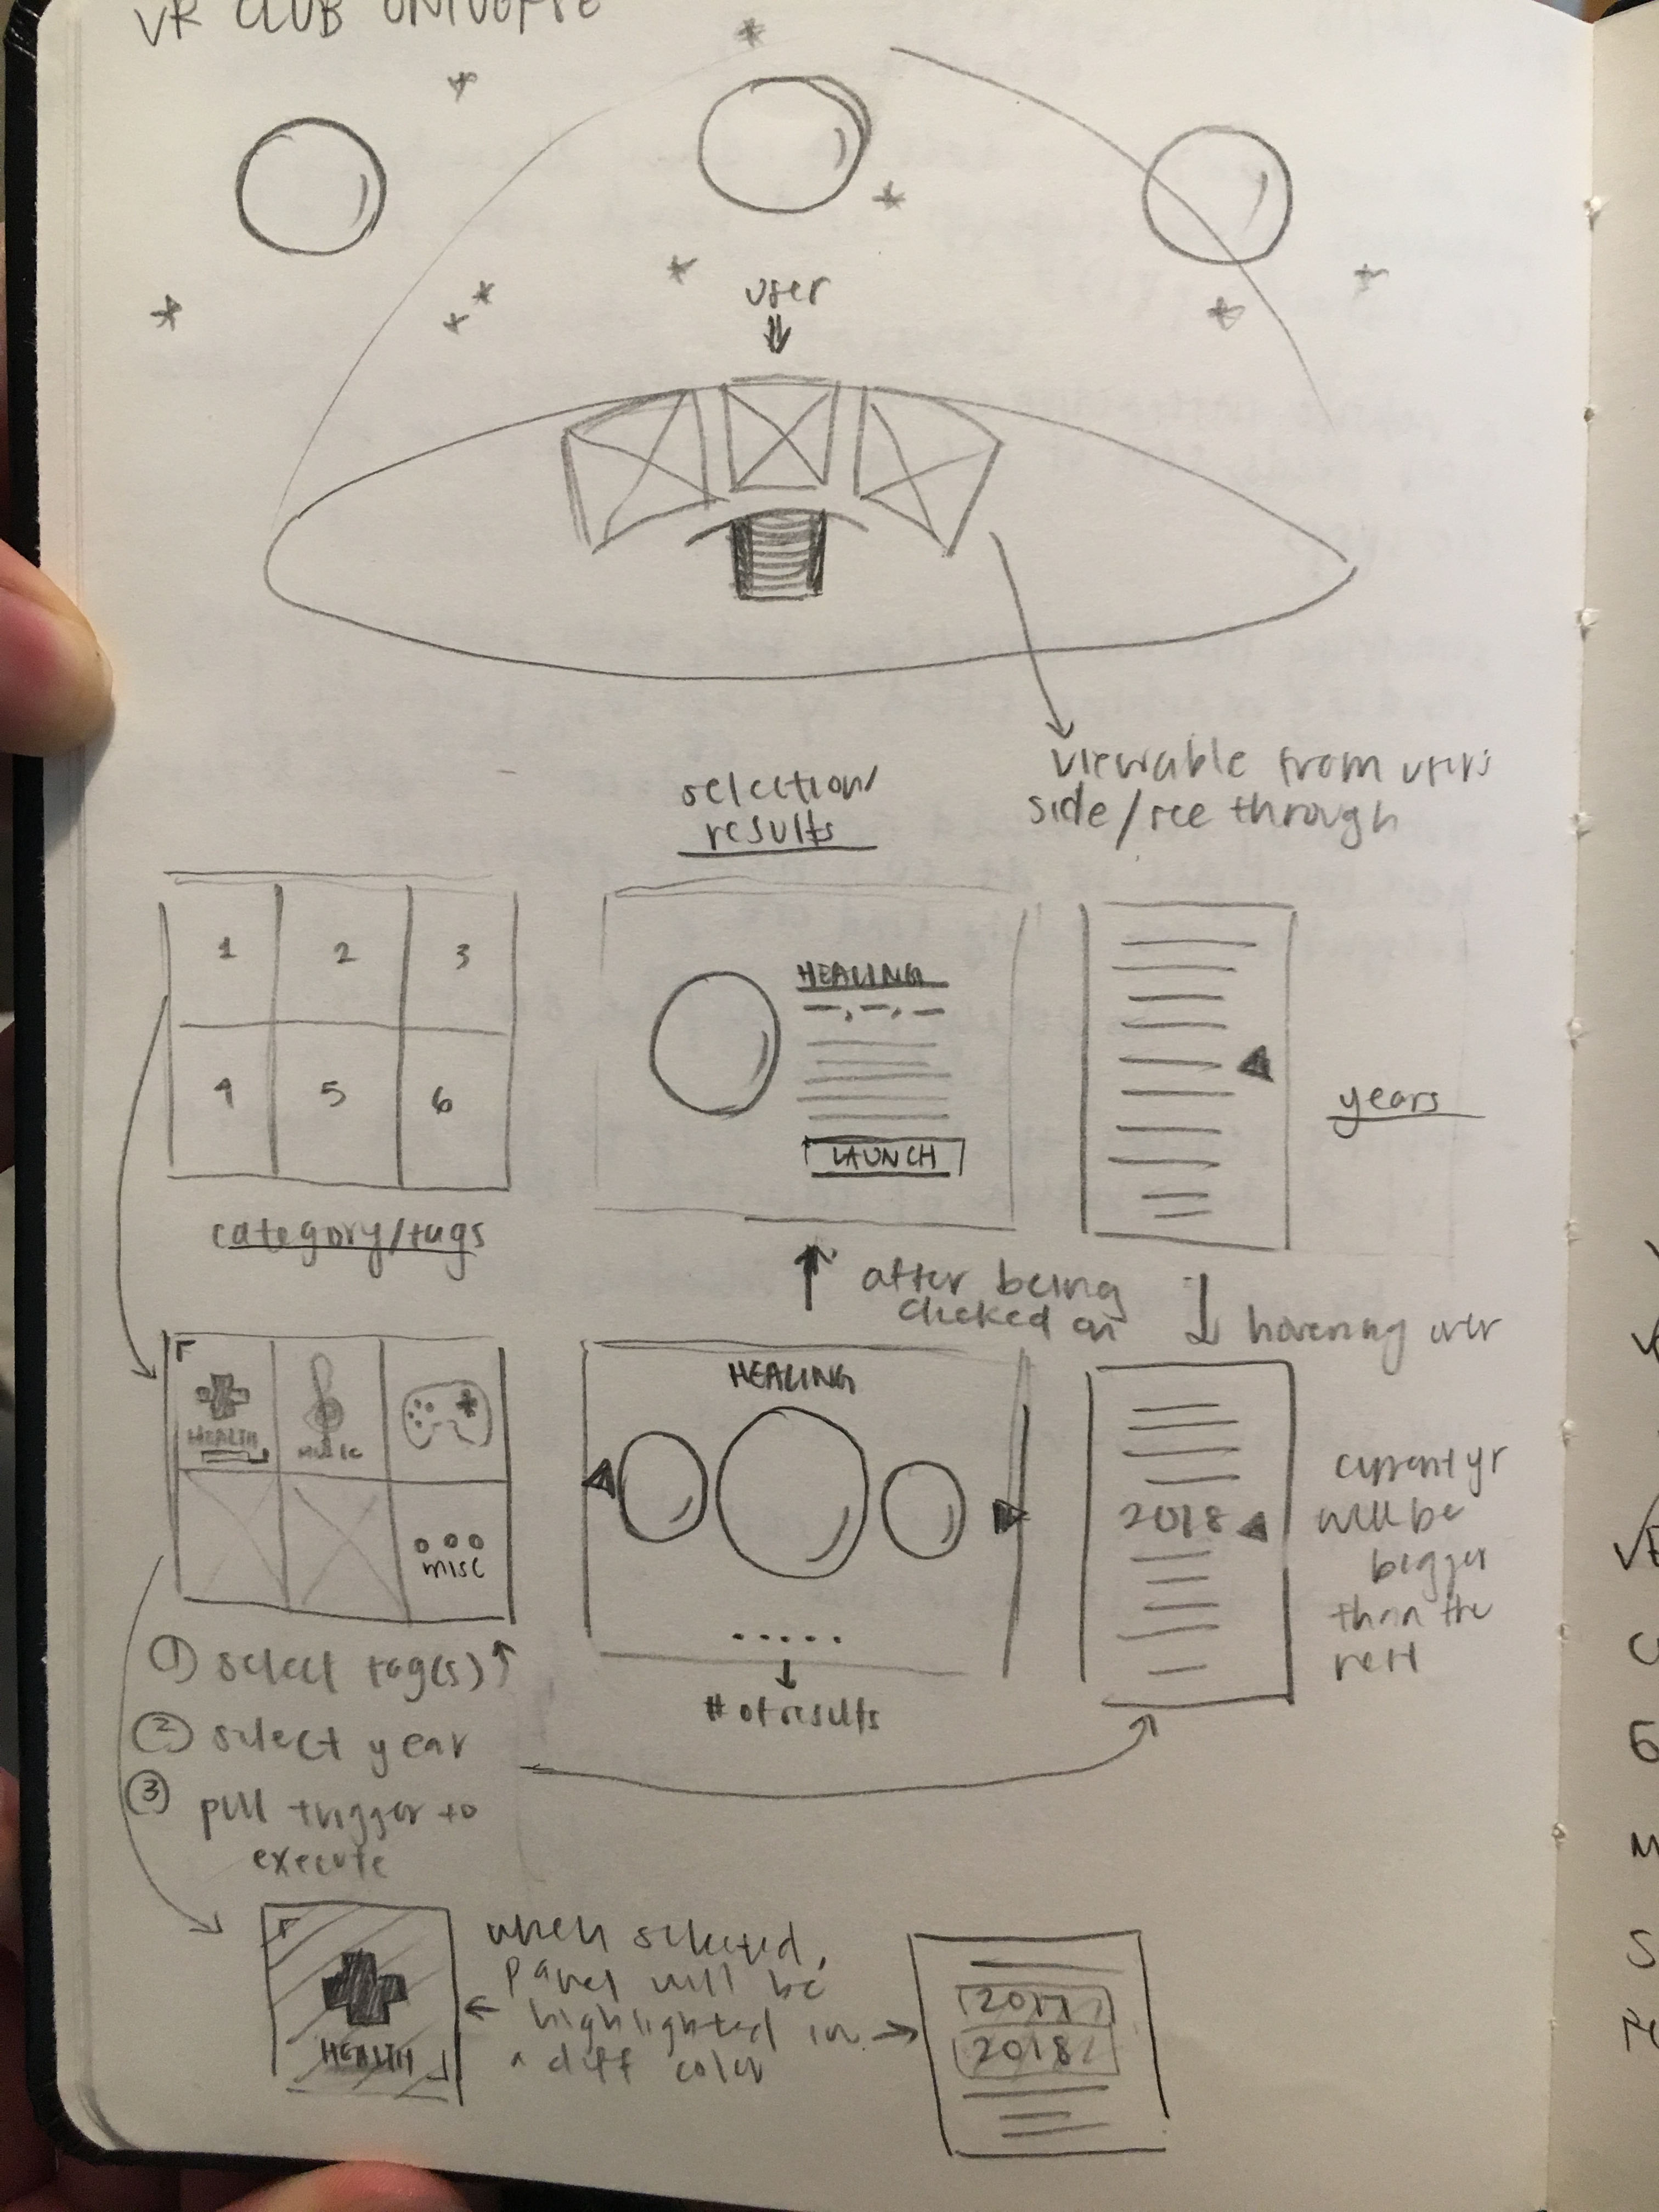 VR CLUB UNIVERSE
user
viewable from user's
side/see through
selection/
results
1 2 3
4 5 6
category/tags
HEALING
LAUNCH
years
after being
clicked on
hovering over
HEALTH
MUSIC
misc
HEALING
# of results
2018
current yr
will be
bigger
than the
rest
① select tag(s)
② select year
③ pull trigger to
execute
HEALTH
when selected,
panel will be
highlighted in
a diff color
2017
2018